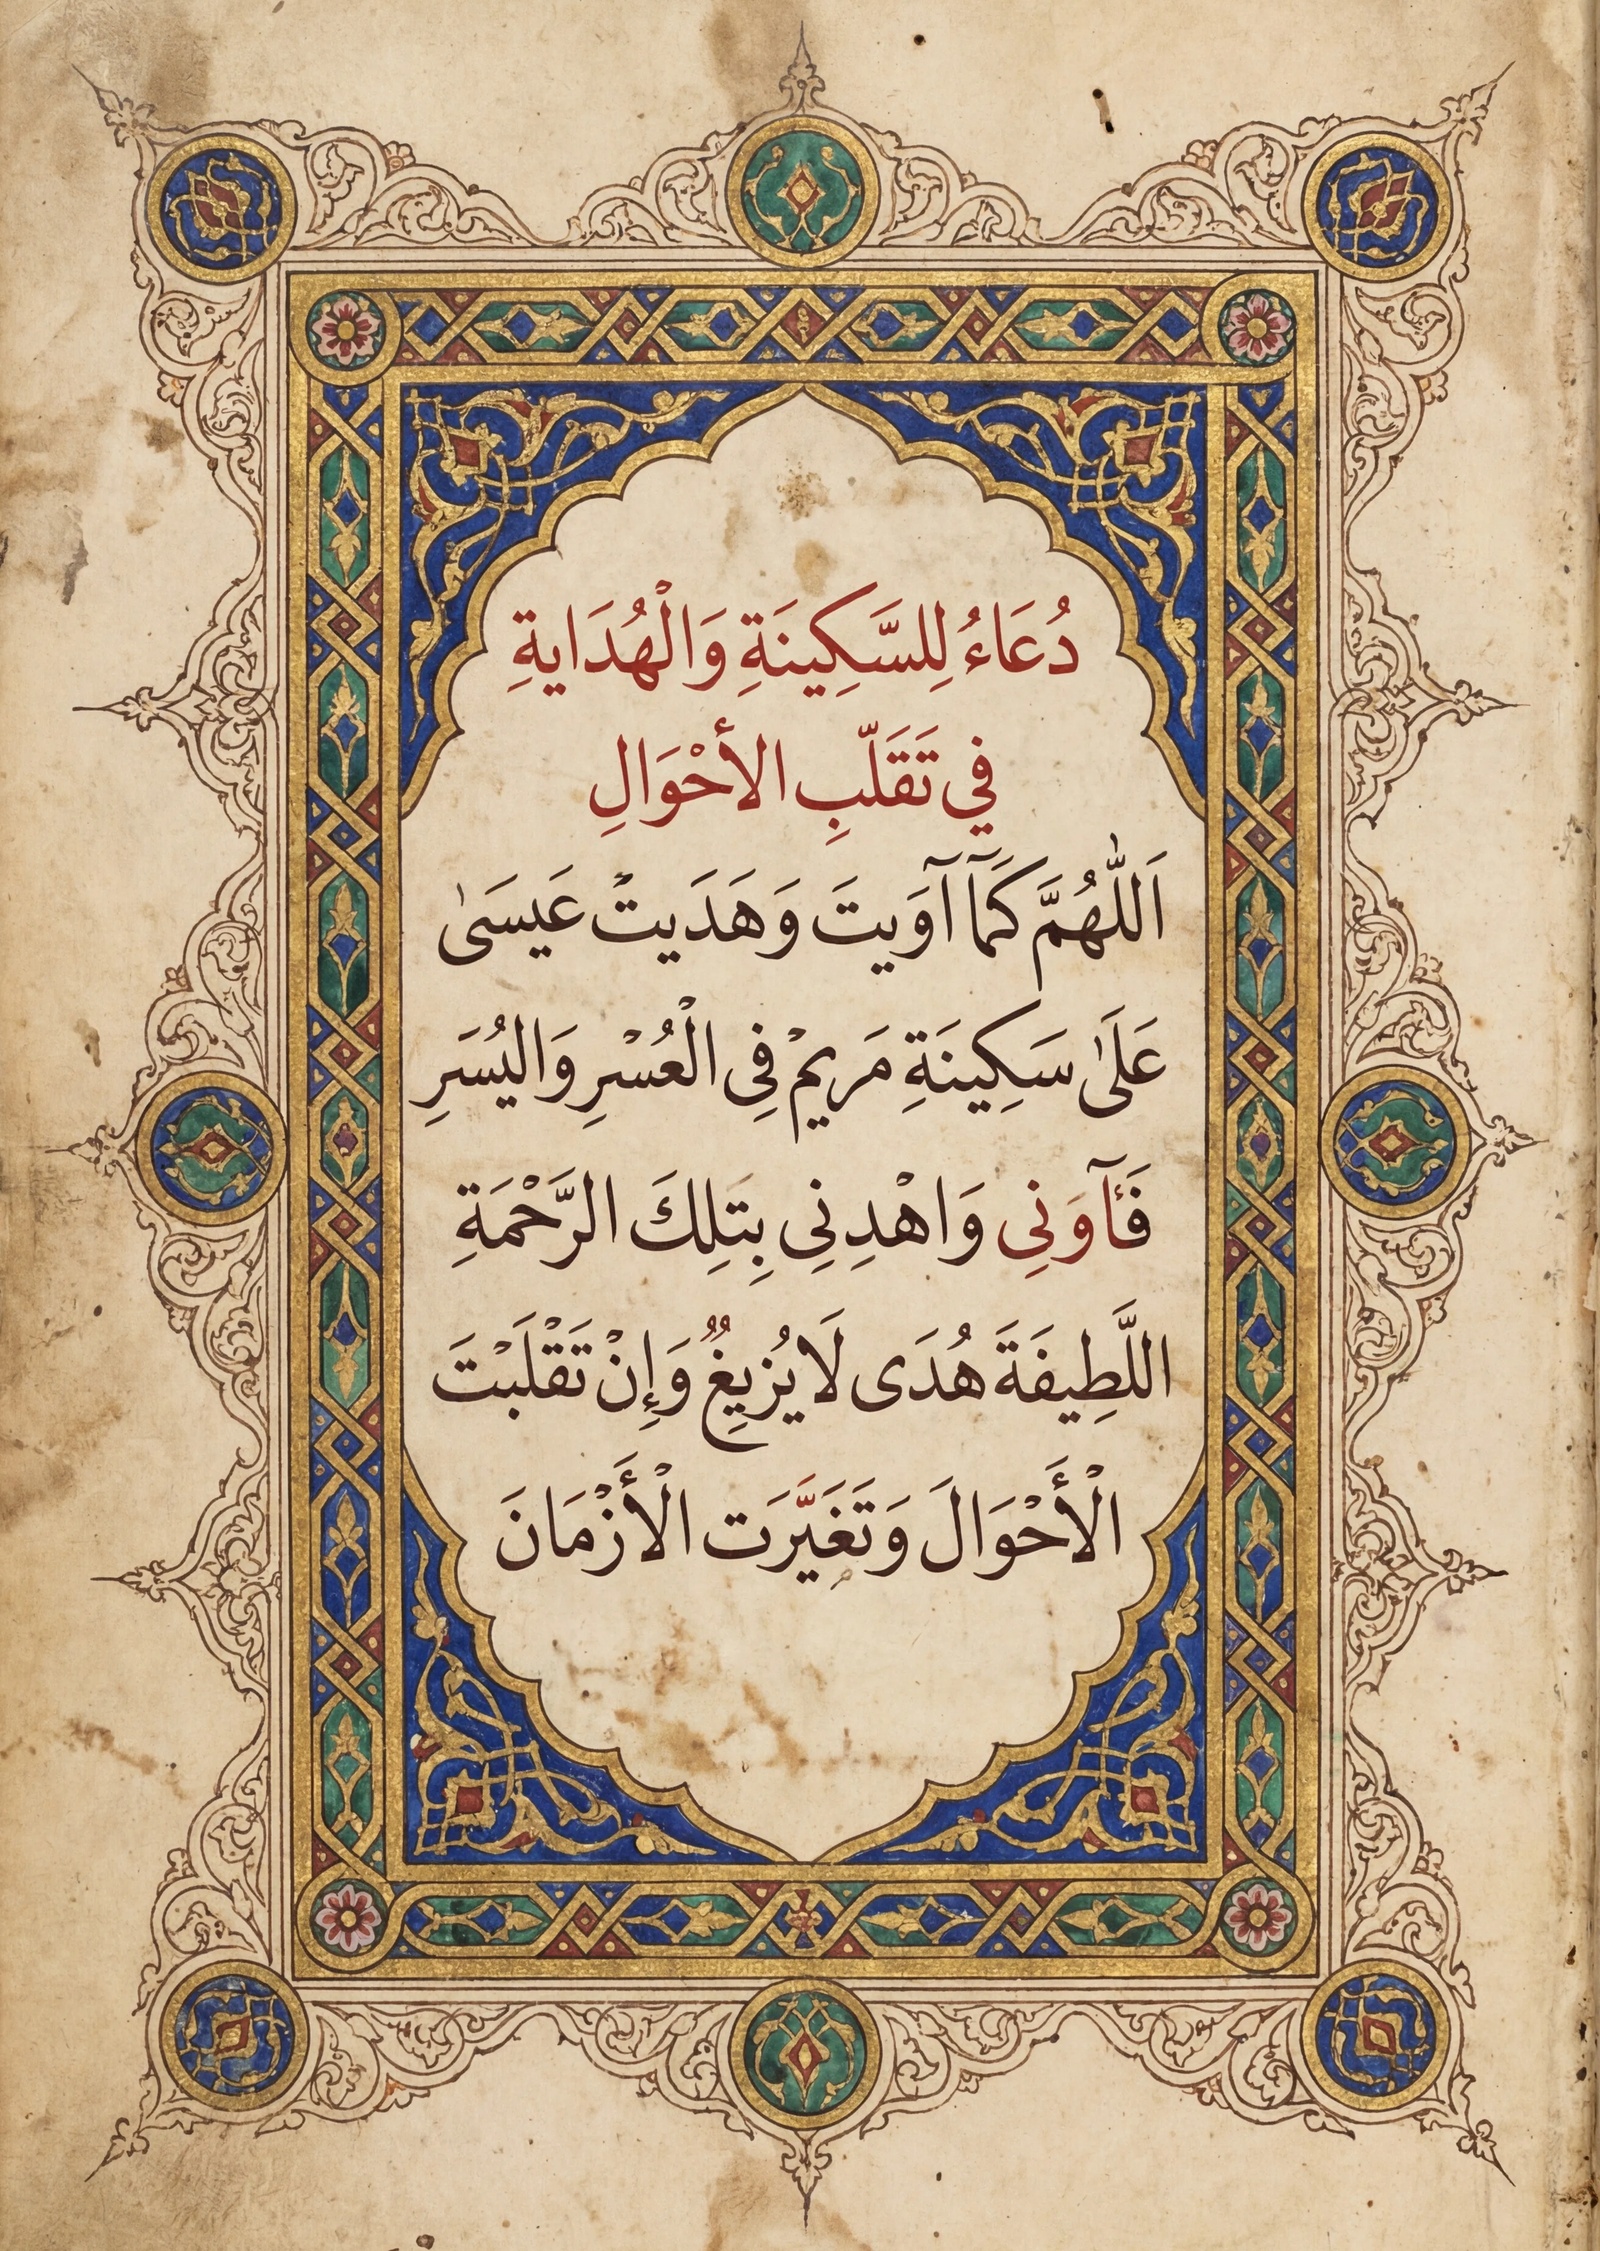 دُعَاءُ لِلسَّكِينَةِ وَالْهُدَايةِ
في تَقَلّبِ الأحْوَالِ
اَللّٰهُمَّ كَمَآ آوَيتَ وَهَدَيتْ عَيسَىٰ
عَلَىٰ سَكِينَةِ مَريمْ فِى الْعُسْرِ وَاليُسَرِ
فَـَٔآوَنِى وَاهْدِنِى بِتَلِكَ الرَّحْمَةِ
اللَّطِيفَةَ هُدَى لَا يُزيِغُ وَإِنْ تَقْلَبْتَ
الْأَحْوَالَ وَتَغَيَّرَت الْأَزْمَانَ